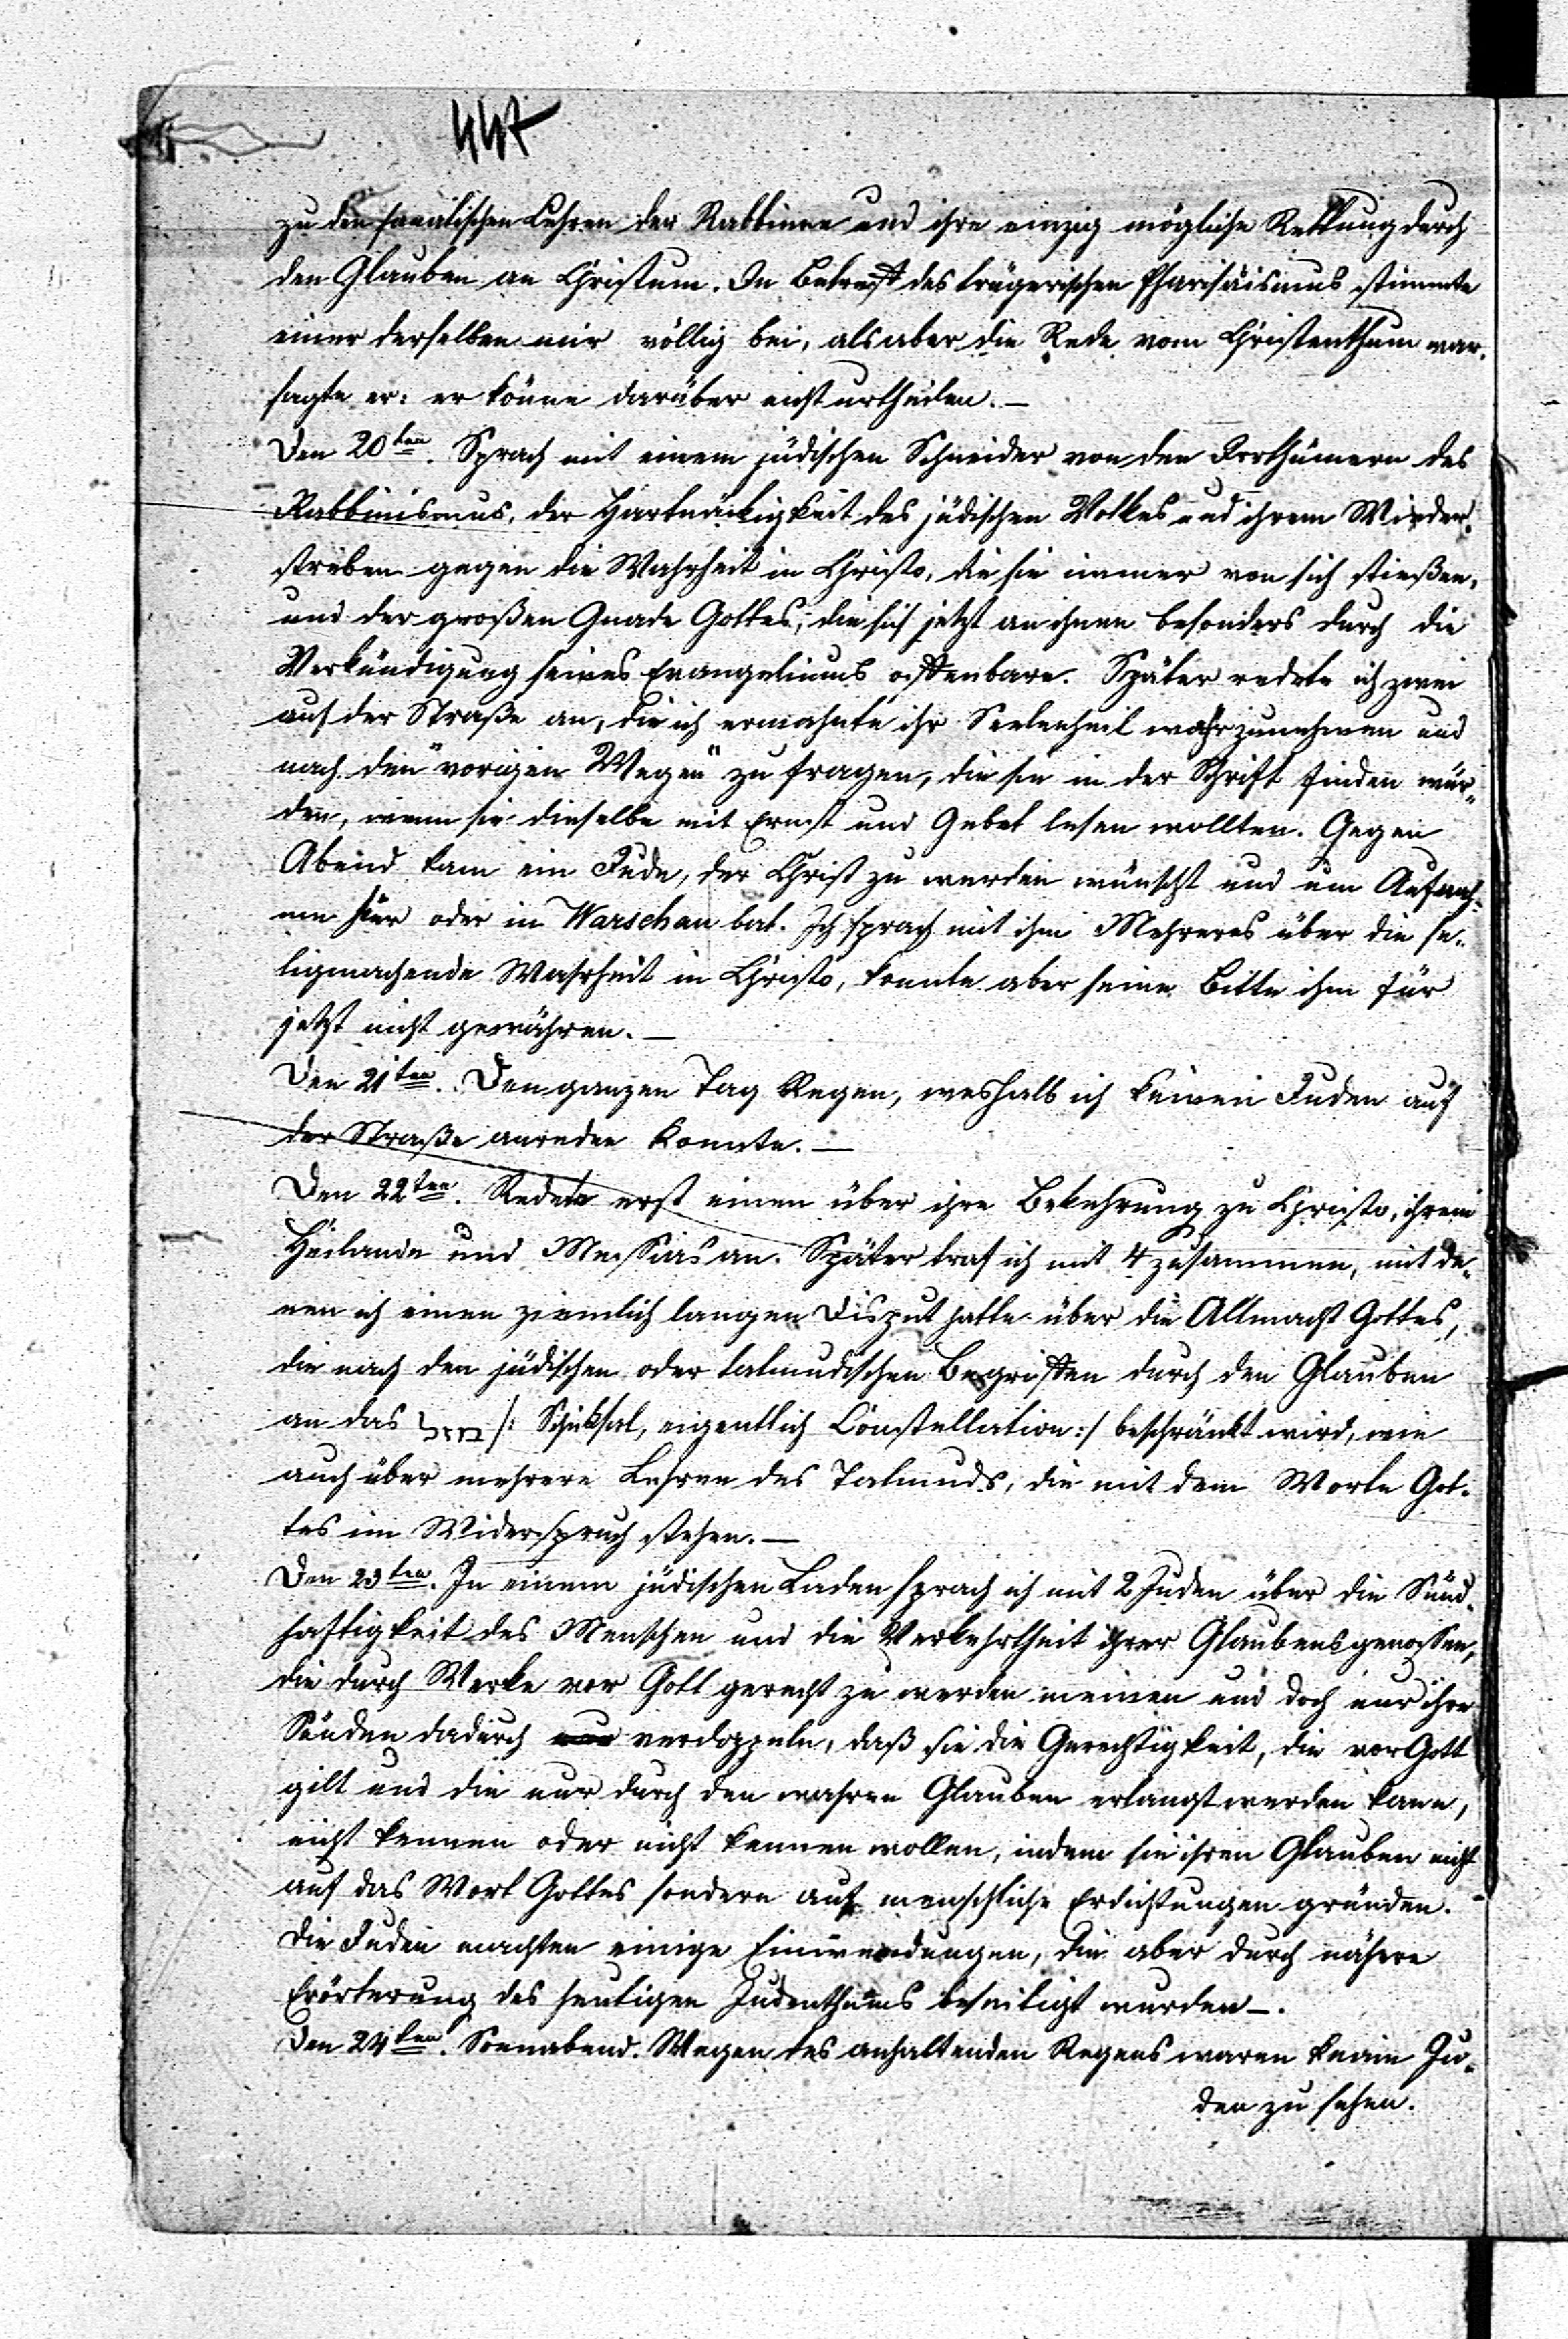 447
zu den fanatischen Lehren der Rabbinen und ihre einzig mögliche Rettung durch
den Glauben an Christum. In Betreff des trügerischen Pharisäismus stimmte
einer derselben mir völlig bei, als aber die Rede vom Christenthum war,
sagte er: er könne darüber nicht urtheilen. —
Den 20ten. Sprach mit einem jüdischen Schneider von den Irrthümern des
Rabbinismus, der Hartnäckigkeit des jüdischen Volkes und ihrem Wieder-
streben gegen die Wahrheit in Christo, die sie immer von sich stießen,
und der großen Gnade Gottes, die sich jetzt an ihnen besonders durch die
Verkündigung seines Evangeliums offenbare. Später redete ich zwei
auf der Straße an, die ich ermahnte ihr Seelenheil wahrzunehmen und
nach den "vorigen Wegen" zu fragen, die sie in der Schrift finden wür-
den, wenn sie dieselbe mit Ernst und Gebet lesen wollten. Gegen
Abend kam ein Jude, der Christ zu werden wünscht und um Aufnah-
me hier oder in Warschau bat. Ich sprach mit ihm Mehreres über die se-
ligmachende Wahrheit in Christo, konnte aber seine Bitte ihm für
jetzt nicht gewähren. —
Den 21ten. Den ganzen Tag Regen, weshalb ich keinen Juden auf
der Straße anreden konnte. —
Den 22ten. Redete erst einen über ihre Bekehrung zu Christo, ihrem
Heilande und Messias an. Später traf ich mit 4 zusammen, mit de-
nen ich einen ziemlich langen Disput hatte über die Allmacht Gottes,
die nach den jüdischen oder talmudischen Begriffen durch den Glauben
an das מזל /: Schicksal, eigentlich Constellation :/ beschränkt wird, wie
auch über mehrere Lehren des Talmuds, die mit dem Worte Got-
tes im Widerspruch stehen. —
Den 23ten. In einem jüdischen Laden sprach ich mit 2 Juden über die Sünd-
haftigkeit des Menschen und die Verkehrtheit ihrer Glaubensgenossen,
die durch Werke vor Gott gerecht zu werden meinen und doch nur ihre
Sünden dadurch verdoppeln, daß sie die Gerechtigkeit, die vor Gott
gilt und die nur durch den wahren Glauben erlangt werden kann,
nicht kennen oder nicht kennen wollen, indem sie ihren Glauben nicht
auf das Wort Gottes sondern auf menschliche Erdichtungen gründen.
Die Juden machten einige Einwendungen, die aber durch nähere
Erörterung des heutigen Judenthums beseitigt wurden —.
Den 24ten. Sonnabend. Wegen des anhaltenden Regens waren keine Ju-
den zu sehen.